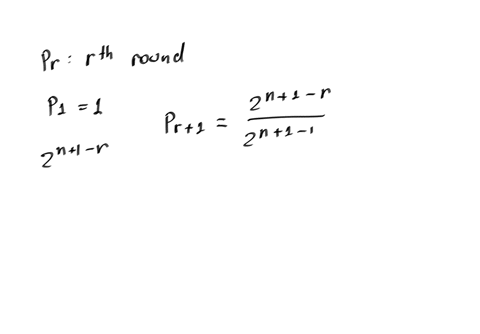 Pr : rth round
P1 = 1
2^{n+1-r}
P_{r+1} = \frac{2^{n+1-r}}{2^{n+1-1}}